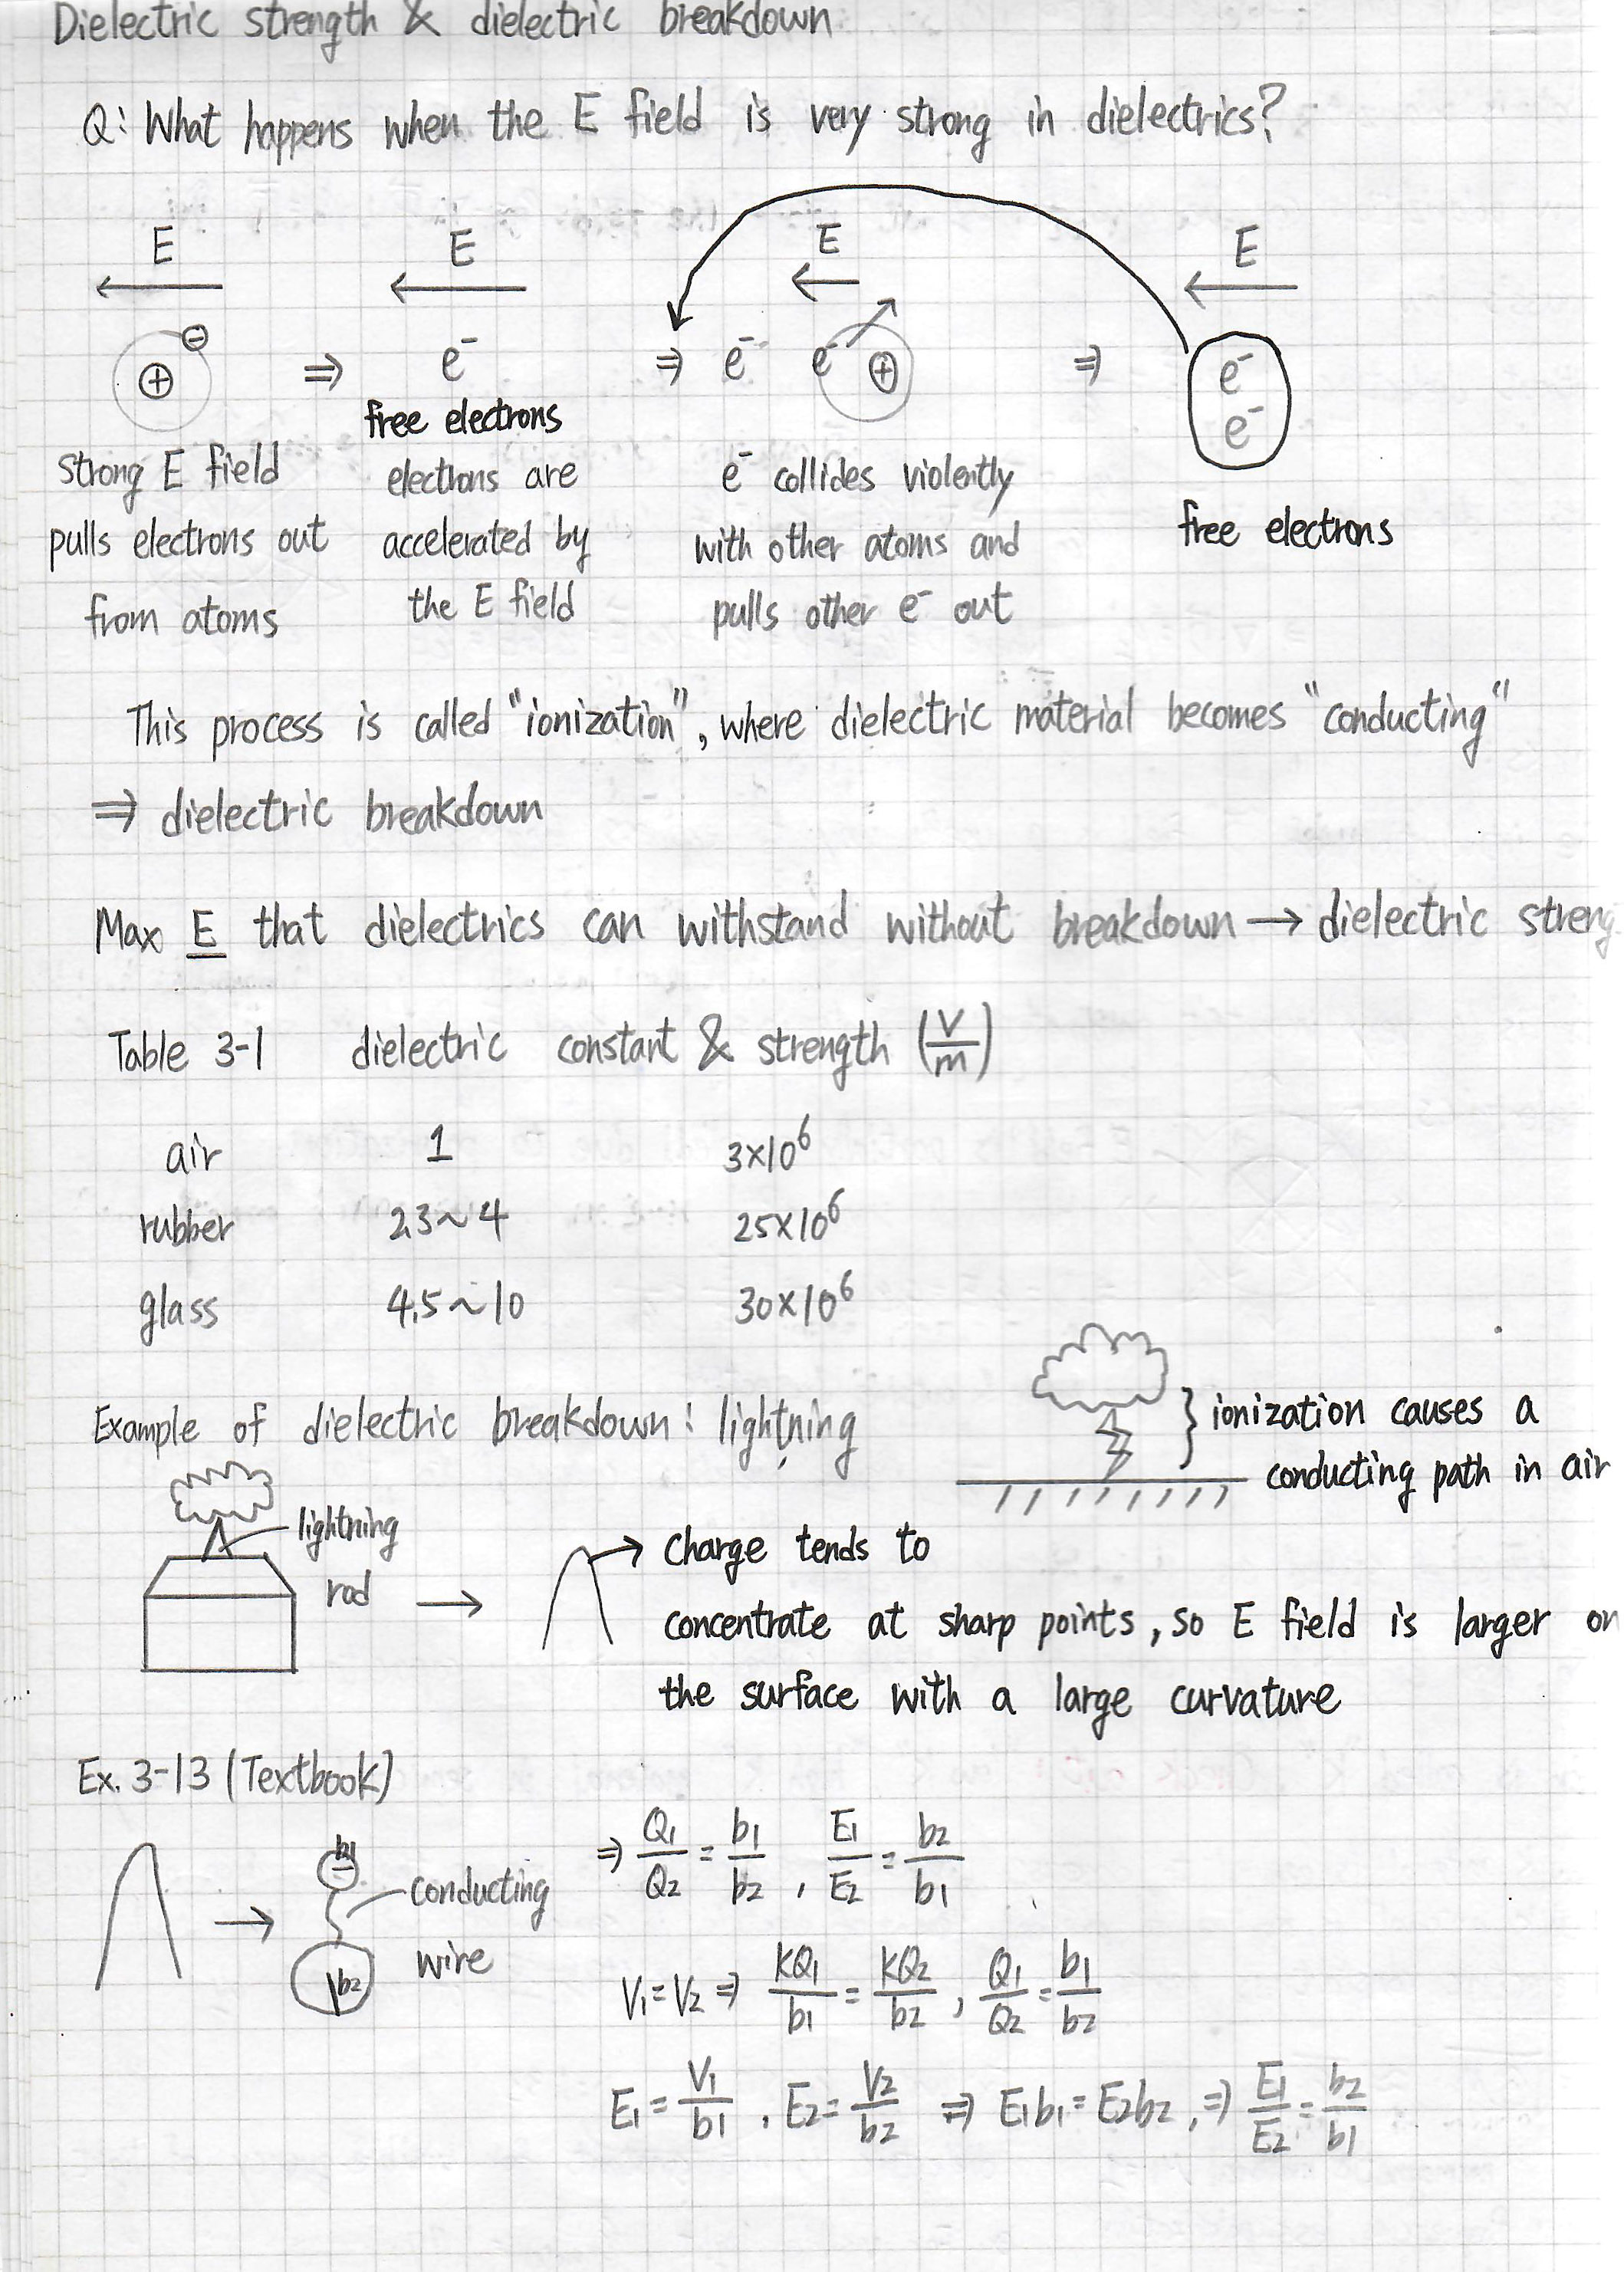 Dielectric strength & dielectric breakdown
Q: What happens when the E field is very strong in dielectrics?
E E E E
⊖
⊕ ⇒ e⁻ ⇒ e⁻ e⁻ ⊕ ⇒ e⁻
e⁻
free electrons
strong E field
pulls electrons out
from atoms
electrons are
accelerated by
the E field
e⁻ collides violently
with other atoms and
pulls other e⁻ out
free electrons
This process is called "ionization", where dielectric material becomes "conducting"
⇒ dielectric breakdown
Max E that dielectrics can withstand without breakdown → dielectric streng
Table 3-1 dielectric constant & strength (V/m)
air 1 3×10⁶
rubber 2.3~4 25×10⁶
glass 4.5~10 30×10⁶
Example of dielectric breakdown: lightning
} ionization causes a
conducting path in air
lightning
rod → → charge tends to
concentrate at sharp points, so E field is larger on
the surface with a large curvature
Ex. 3-13 (Textbook)
b1
→ conducting
wire
b2
⇒ Q1/Q2 = b1/b2 , E1/E2 = b2/b1
V1=V2 ⇒ KQ1/b1 = KQ2/b2 , Q1/Q2 = b1/b2
E1 = V1/b1 , E2 = V2/b2 ⇒ E1b1 = E2b2, ⇒ E1/E2 = b2/b1